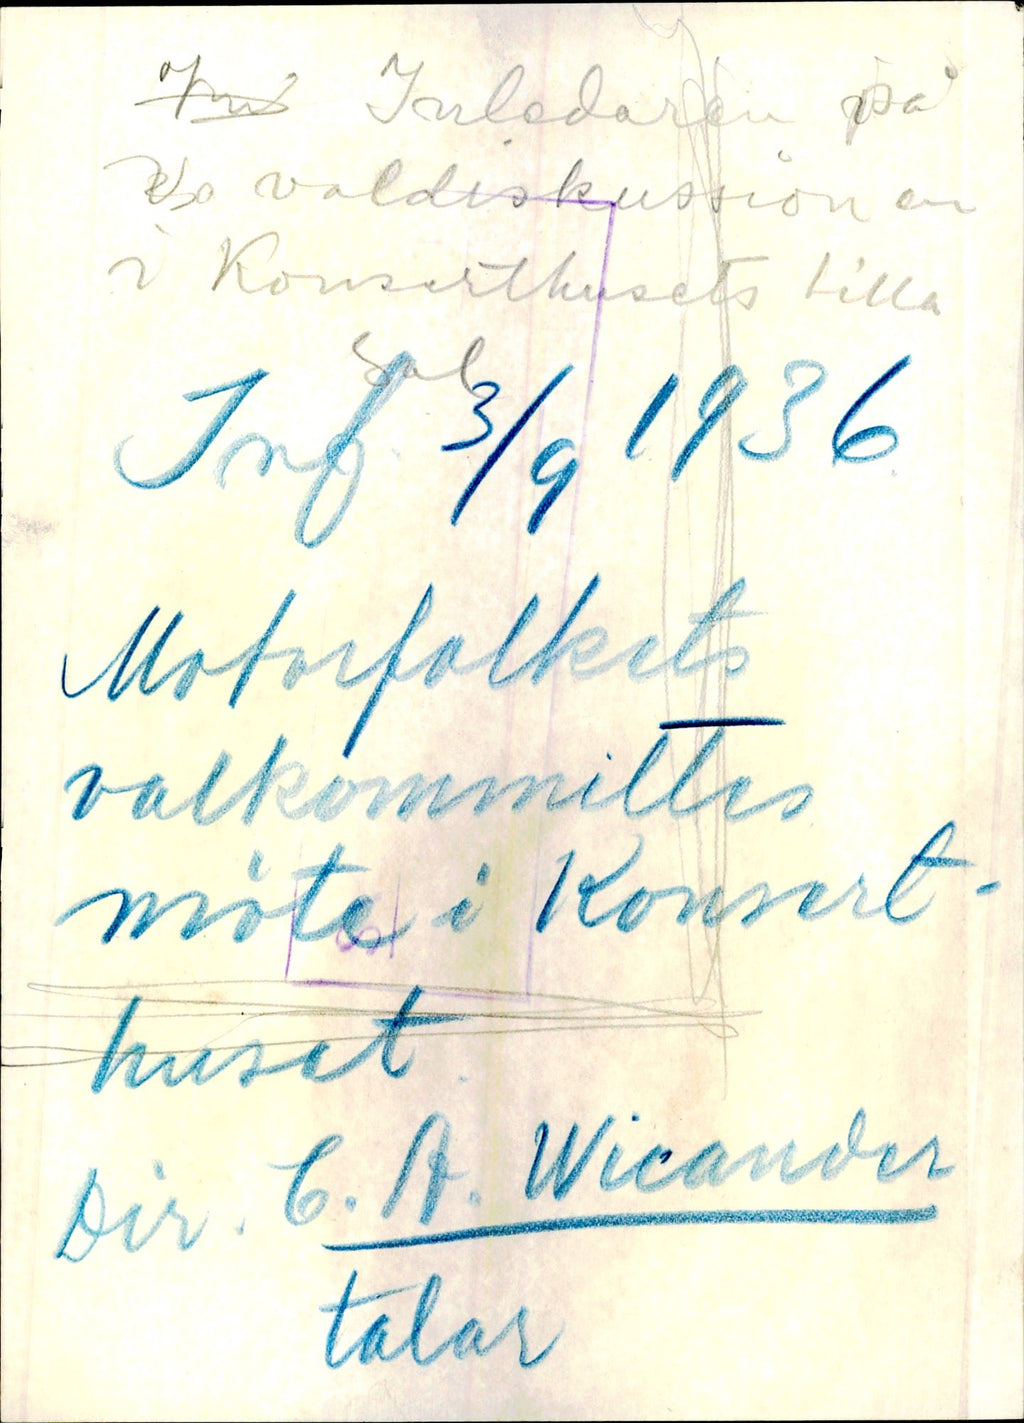 Inledaren på
valdiskussionen
i Konserthusets lilla
Sal
Inf. 3/9 1936
Motorfolkets
valkommittes
möte i Konsert-
huset.
Dir. C. A. Wicander
talar